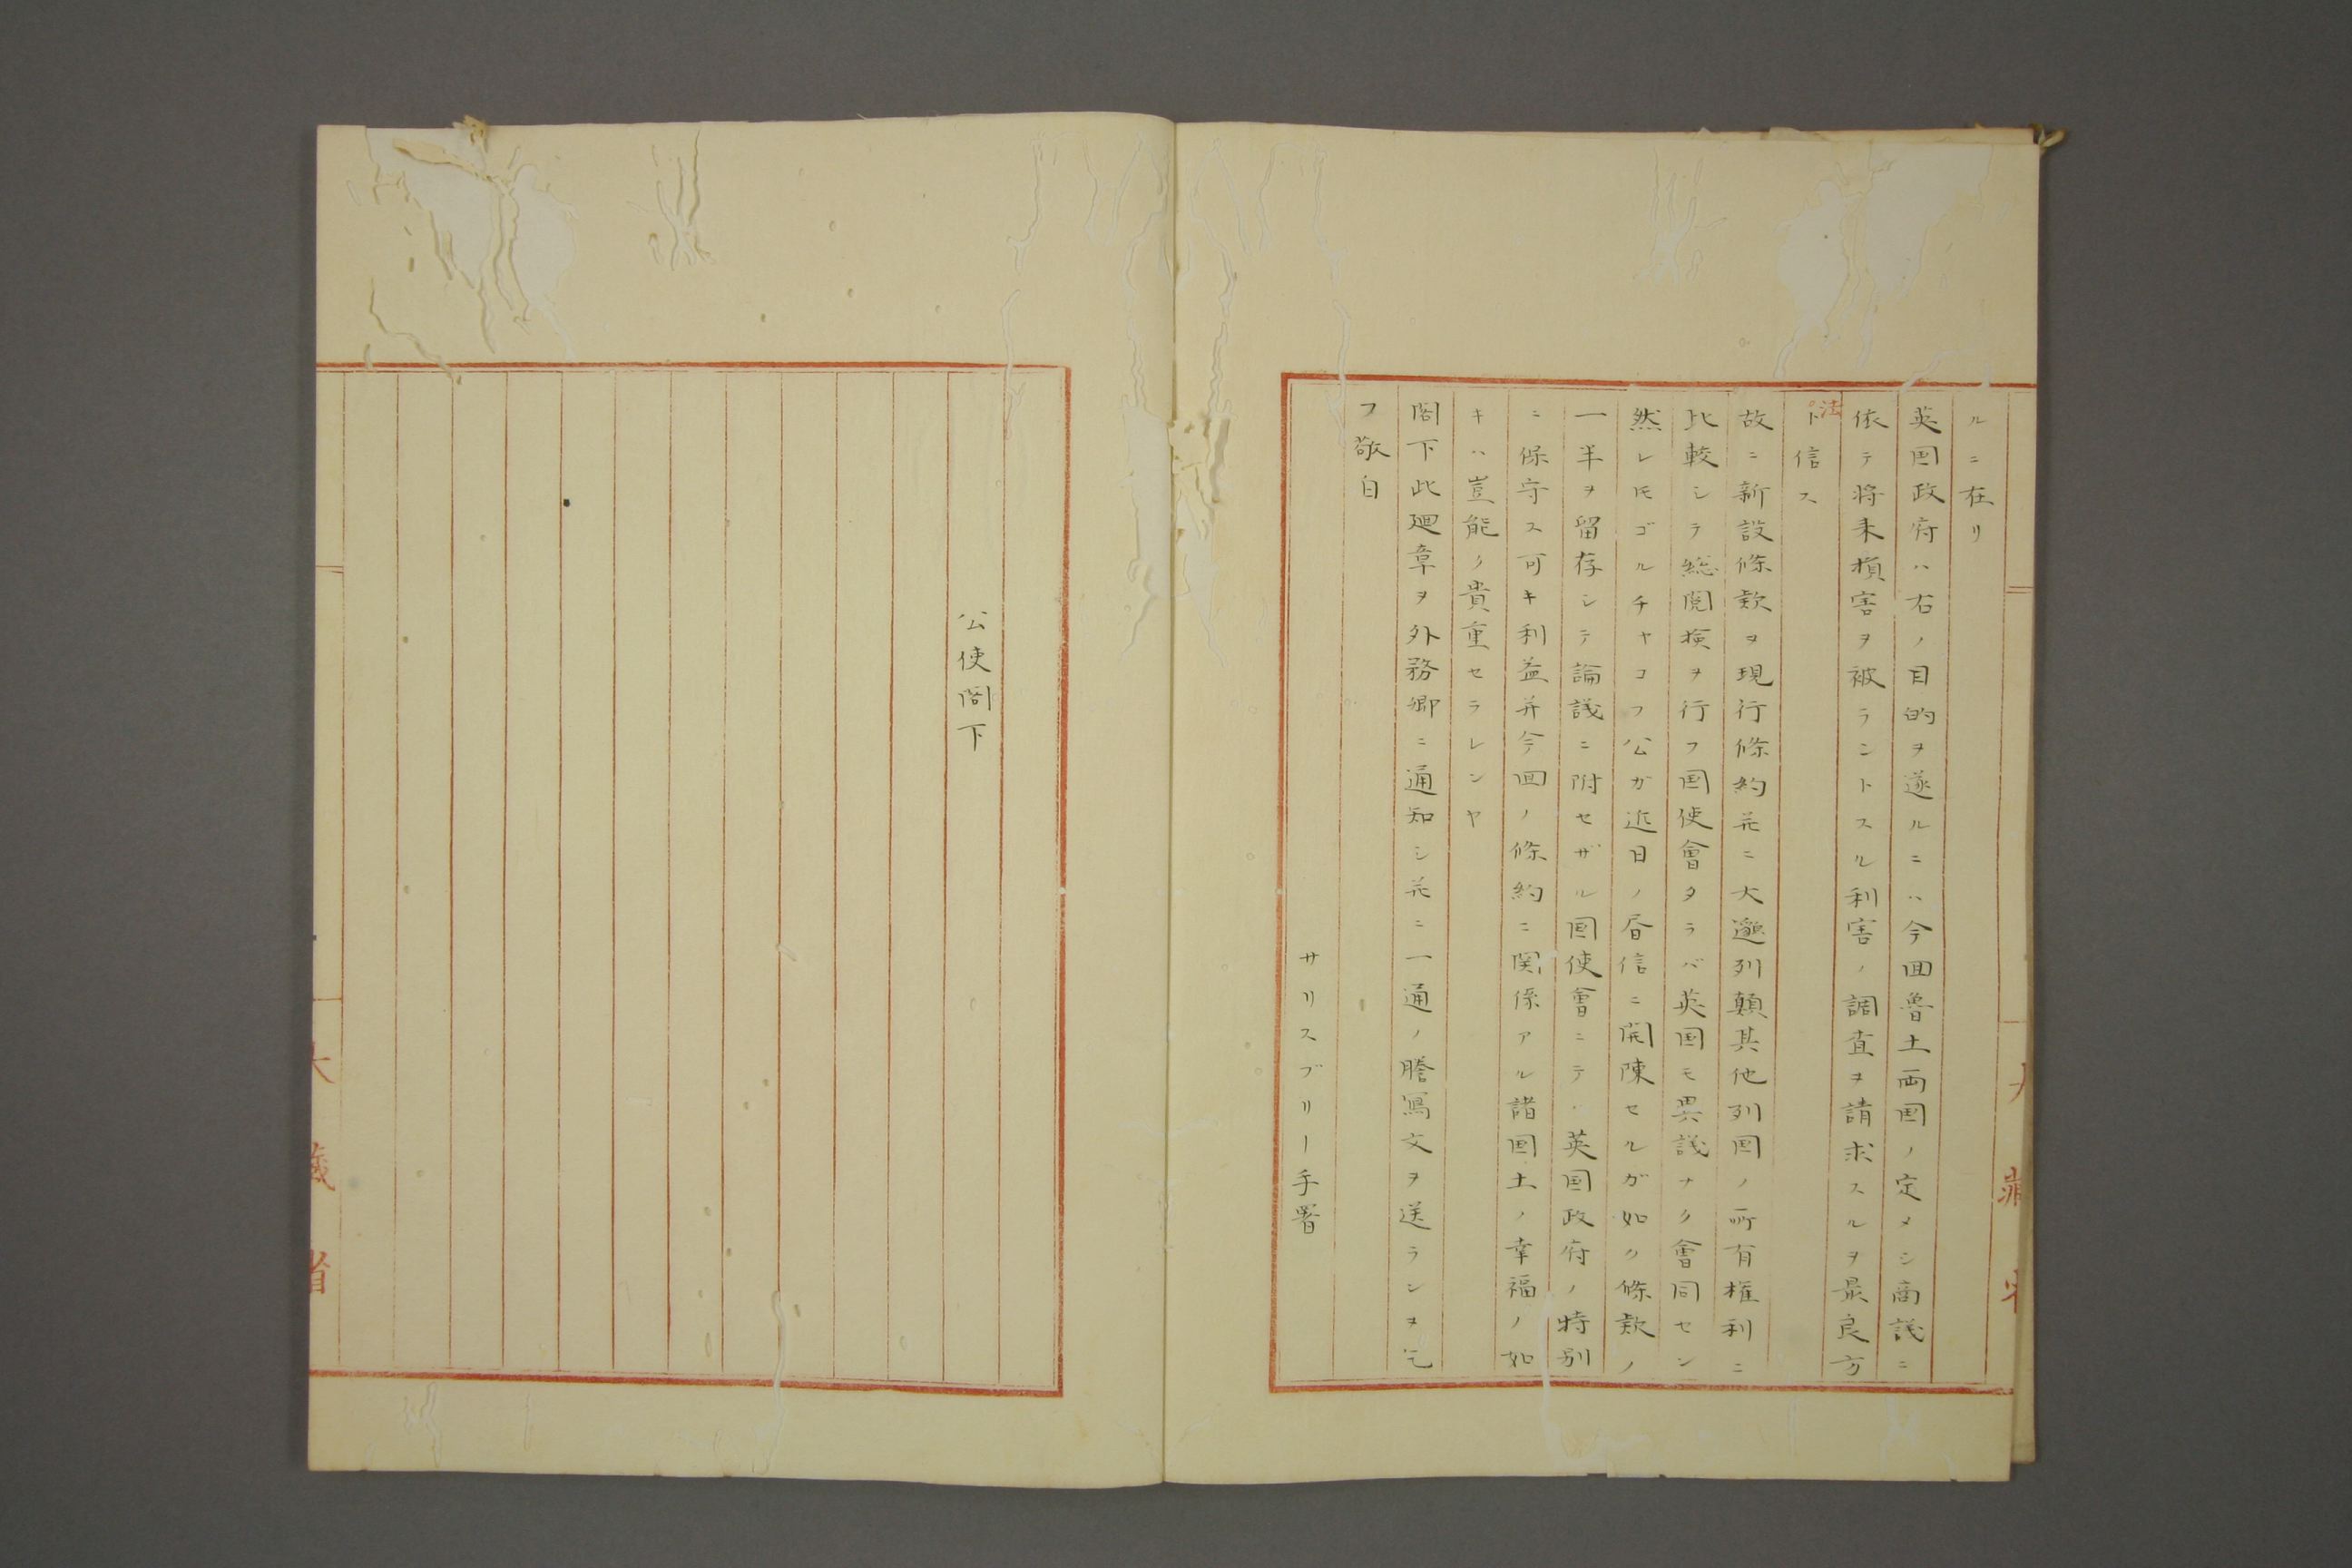 ルニ在リ
英国政府ハ右ノ目的ヲ遂ルニハ今回魯土両国ノ定メシ商議ニ
依テ将来損害ヲ被ラントスル利害ノ調査ヲ請求スルヲ最良方
法
ト信ス
故ニ新設條款ヲ現行條約并ニ大邀列顛其他列国ノ所有権利ニ
比較シテ総閲検ヲ行フ国使會タラバ英国モ異議ナク會同セン
然レ𪜈ゴルチャコフ公ガ近日ノ昏信ニ開陳セルガ如ク條款ノ
一半ヲ留存シテ論議ニ附セザル国使會ニテ英国政府ノ特別
ニ保守ス可キ利益并今回ノ條約ニ関係アル諸国土ノ幸福ノ如
キハ豈能ク貴重セラレンヤ
閣下此廻章ヲ外務卿ニ通知シ并ニ一通ノ謄寫文ヲ送ランヲ乞
フ敬白
サリスブリー手署
公使閣下
大藏省